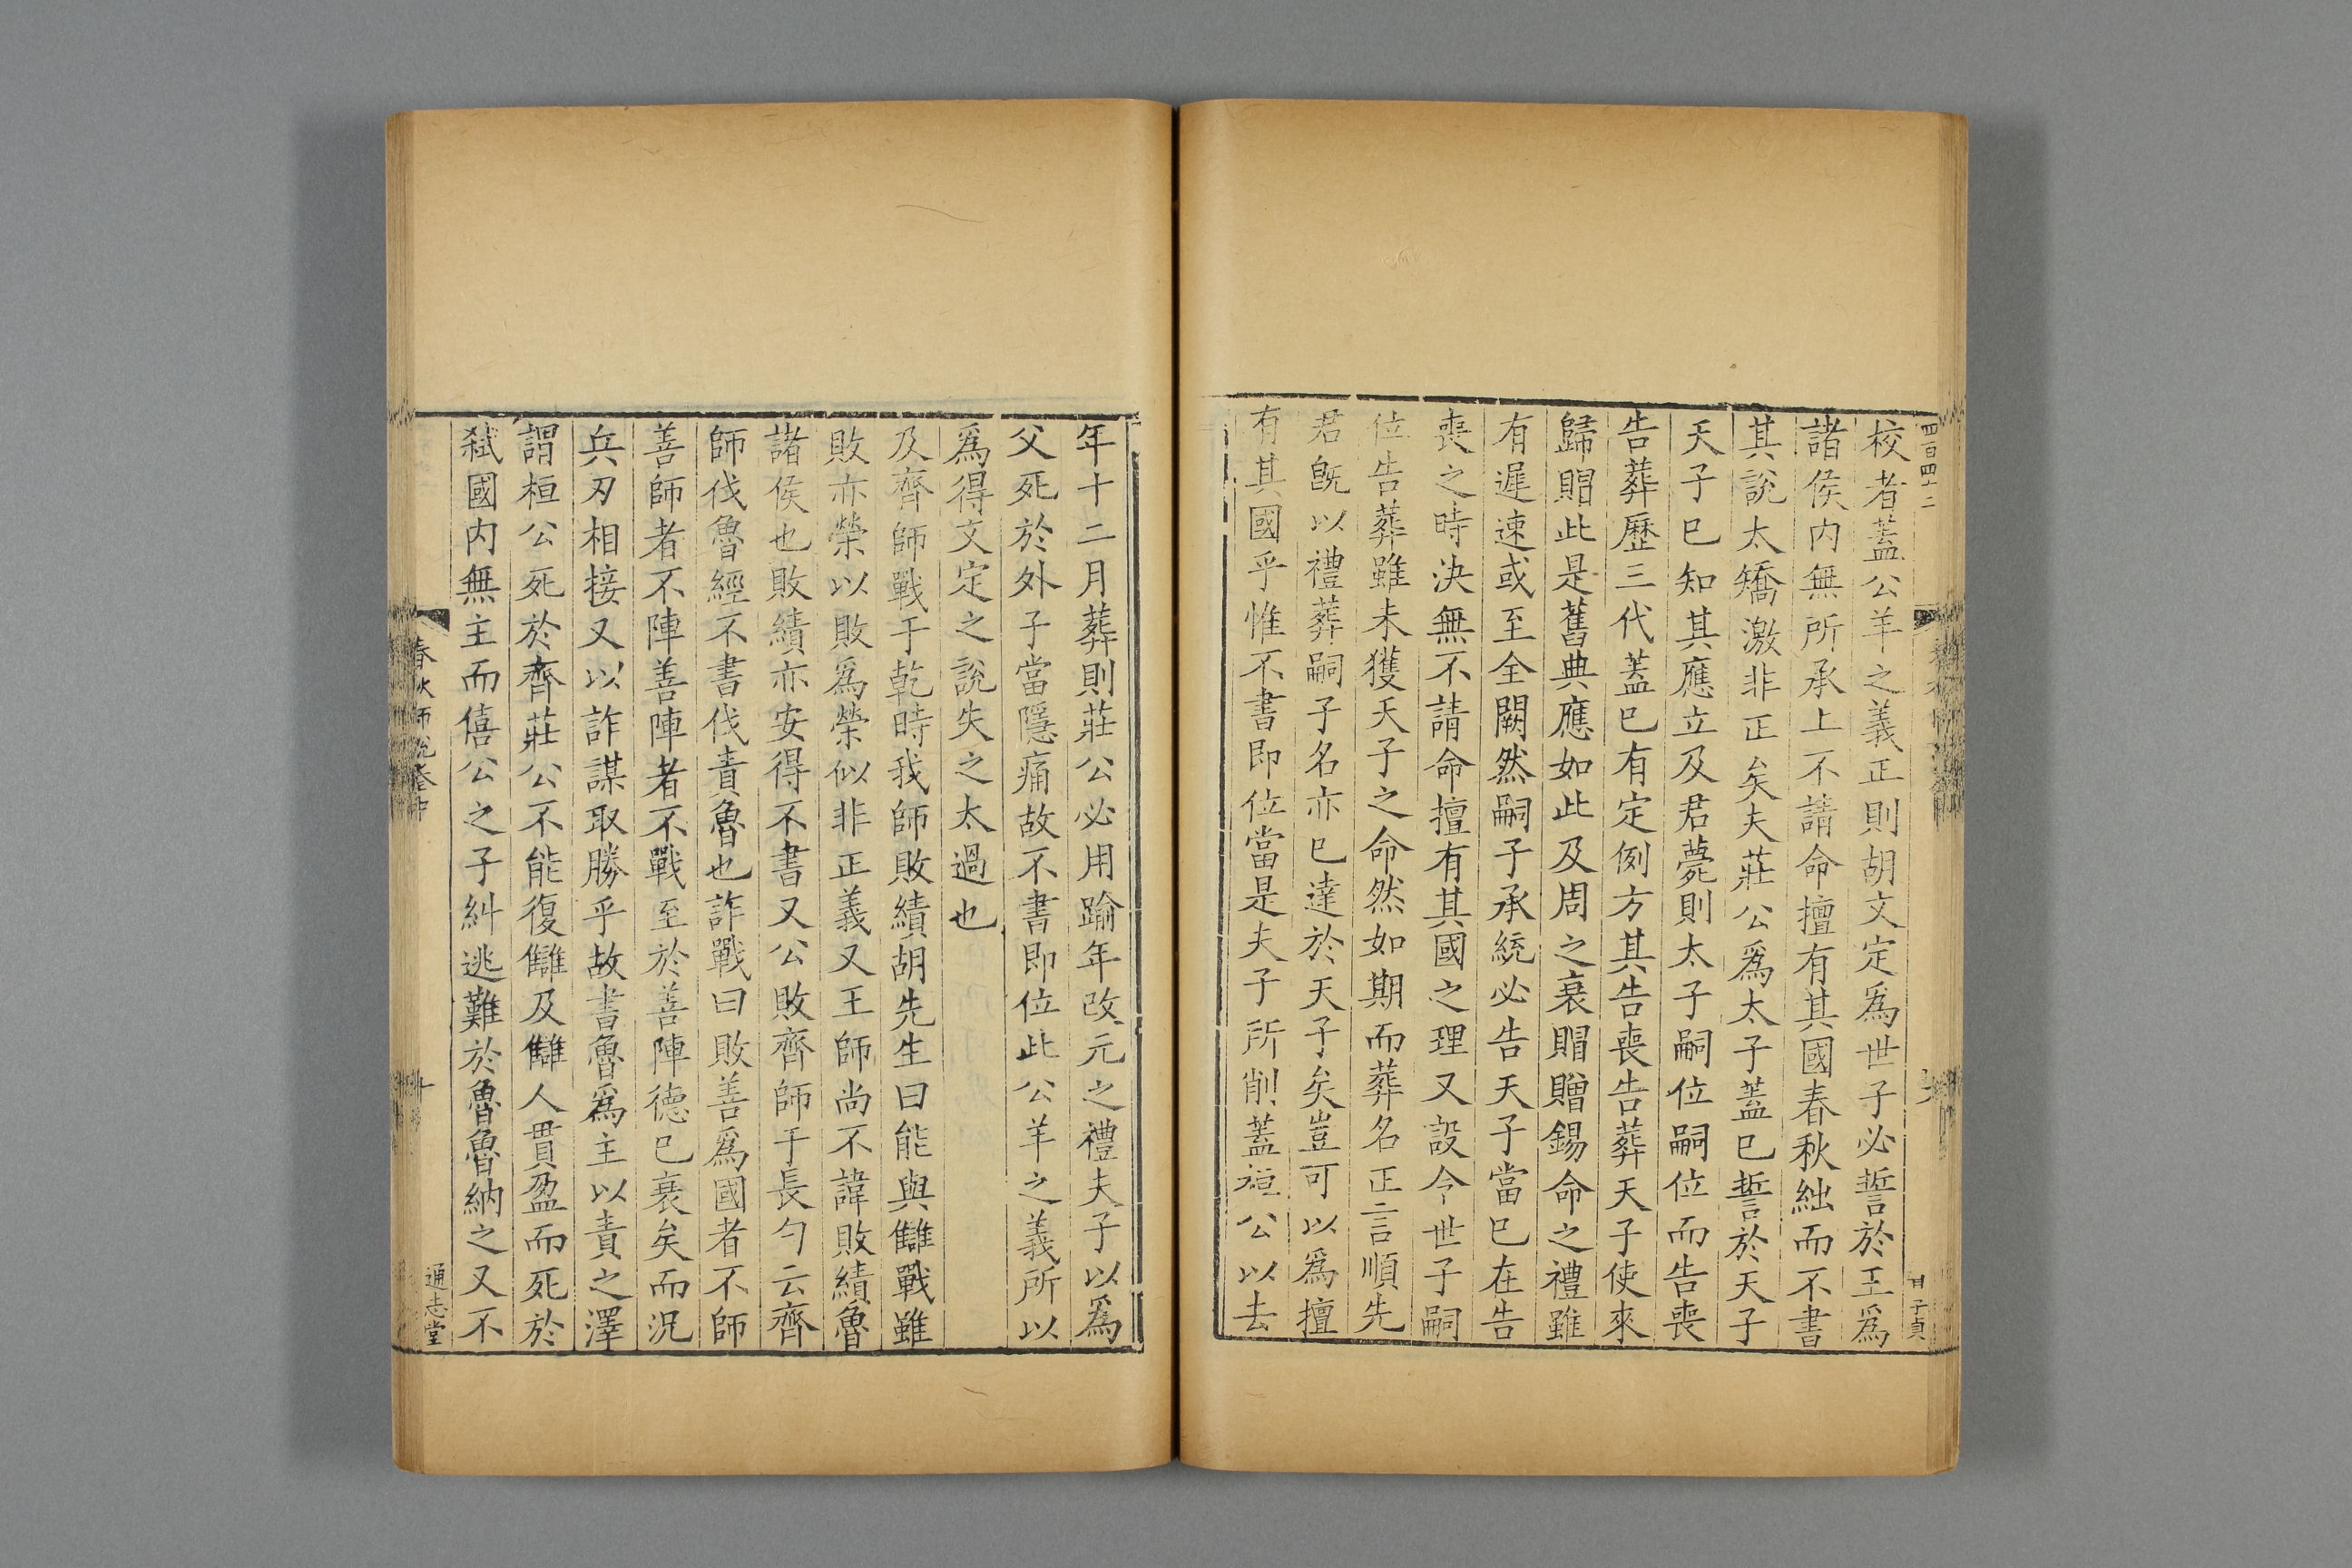 四百四十二
校者蓋公羊之義正則胡文定爲世子必誓於王爲
諸侯内無所承上不請命擅有其國春秋絀而不書
其說太矯激非正矣夫莊公爲太子蓋已誓於天子
天子已知其應立及君薨則太子嗣位嗣位而告喪
告葬歷三代蓋已有定例方其告喪告葬天子使來
歸賵此是舊典應如此及周之衰賵贈錫命之禮雖
有遲速或至全闕然嗣子承統必告天子當已在告
喪之時決無不請命擅有其國之理又設今世子嗣
位告葬雖未獲天子之命然如期而葬名正言順先
君既以禮葬嗣子名亦已達於天子矣豈可以爲擅
有其國乎惟不書即位當是夫子所削蓋桓公以去
年十二月葬則莊公必用踰年改元之禮夫子以爲
父死於外子當隱痛故不書即位此公羊之義所以
爲得文定之說失之太過也
及齊師戰于乾時我師敗績胡先生曰能與讎戰雖
敗亦榮以敗爲榮似非正義又王師尚不諱敗績魯
諸侯也敗績亦安得不書又公敗齊師于長勺云齊
師伐魯經不書伐責魯也詐戰曰敗善爲國者不師
善師者不陣善陣者不戰至於善陣德已衰矣而況
兵刃相接又以詐謀取勝乎故書魯爲主以責之澤
謂桓公死於齊莊公不能復讎及讎人貫盈而死於
弑國内無主而僖公之子糾逃難於魯魯納之又不
春秋師說卷中
十
通志堂